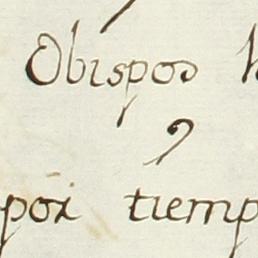 Obispos
y
por tiemp